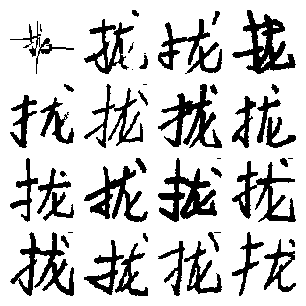 拢拢拢
拢拢拢拢
拢拢拢拢
拢拢拢拢